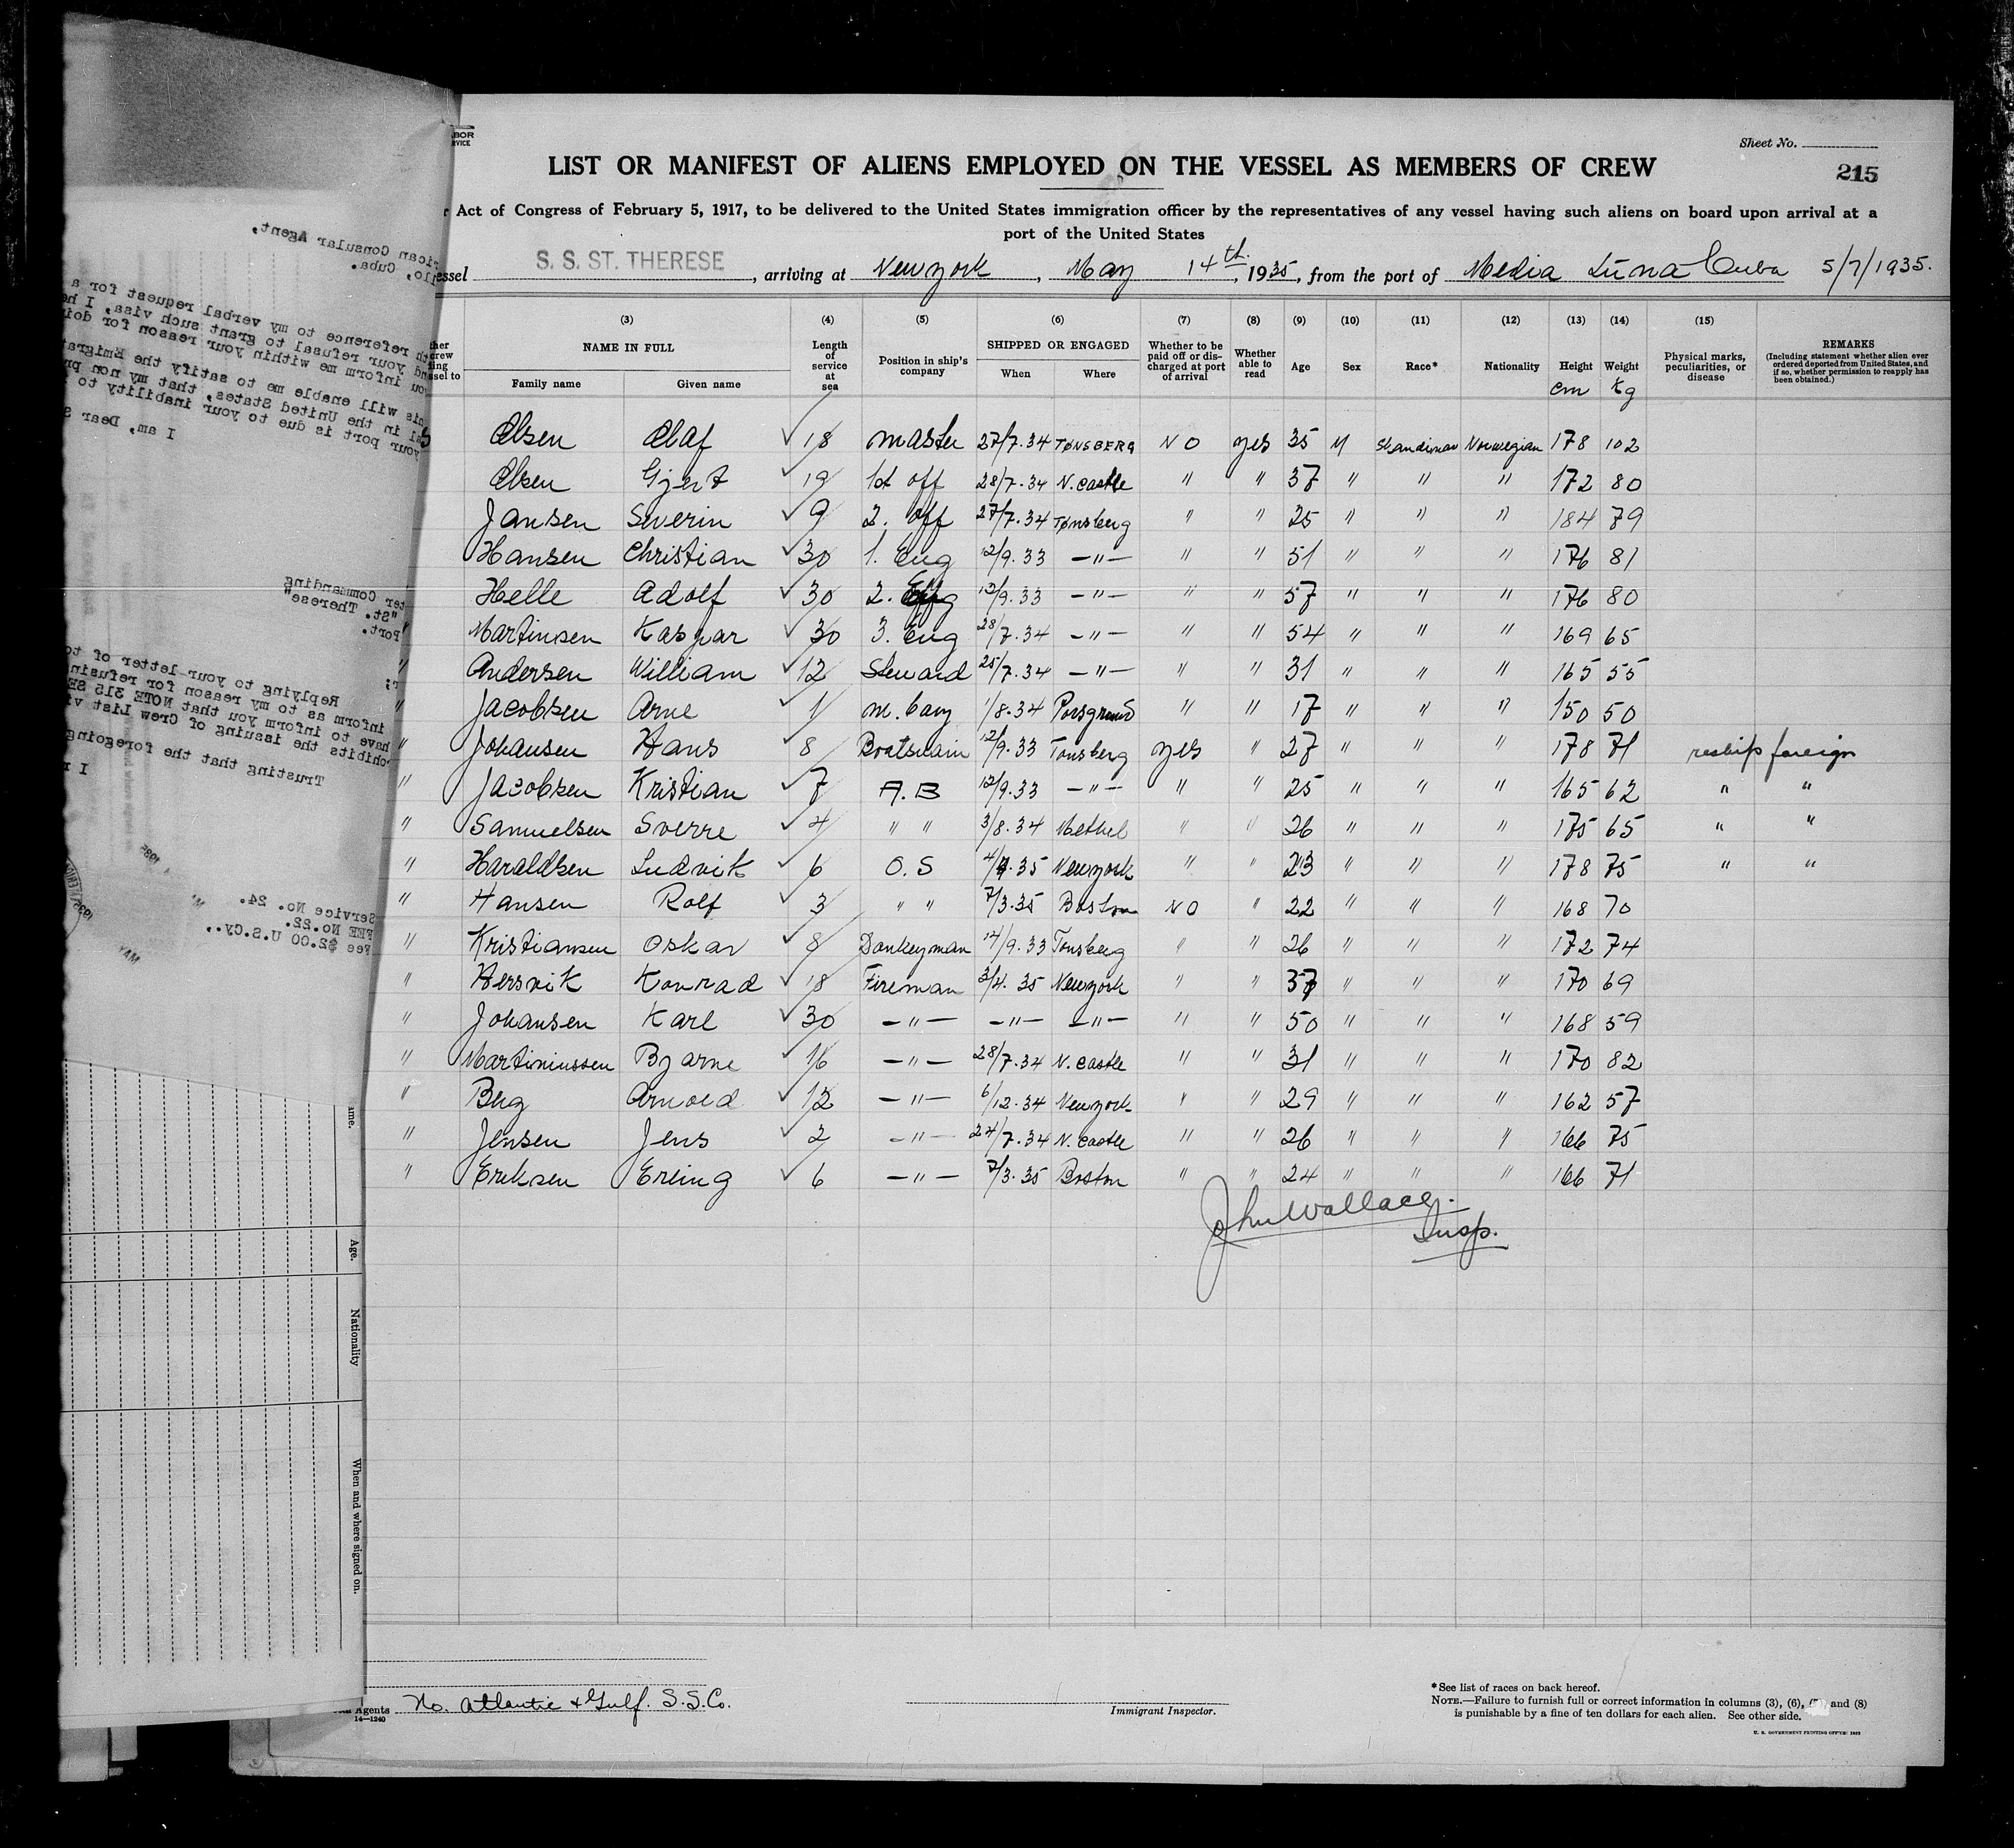 ABOR
RVICE
Sheet No.
LIST OR MANIFEST OF ALIENS EMPLOYED ON THE VESSEL AS MEMBERS OF CREW
215
r Act of Congress of February 5, 1917, to be delivered to the United States immigration officer by the representatives of any vessel having such aliens on board upon arrival at a
port of the United States
essel S. S. ST. THERESE, arriving at New york, May 14th, 1935, from the port of Media Luna Cuba 5/7/1935.
(3) (4) (5) (6) (7) (8) (9) (10) (11) (12) (13) (14) (15)
NAME IN FULL
Family name Given name
Length of service at sea
Position in ship's company
SHIPPED OR ENGAGED
When Where
Whether to be paid off or discharged at port of arrival
Whether able to read
Age Sex Race* Nationality Height Weight
cm Kg
Physical marks, peculiarities, or disease
REMARKS
(Including statement whether alien ever ordered deported from United States, and if so, whether permission to reapply has been obtained.)
Olsen Olaf 18 Master 27/7.34 TØNSBERG NO yes 35 M Skandinav Norwegian 178 102
Olsen Gjert 19 1st off 28/7.34 N.castle " " 37 " " " 172 80
Jansen Severin 9 2. off 27/7.34 Tønsberg " " 25 " " " 184 79
Hansen Christian 30 1. Eng 12/9.33 -"- " " 51 " " " 176 81
Helle Adolf 30 2. Eng 12/9.33 -"- " " 57 " " " 176 80
Martinsen Kaspar 30 3. Eng 28/7.34 -"- " " 54 " " " 169 65
" Andersen William 12 Steward 25/7.34 -"- " " 31 " " " 165 55
" Jacobsen Arne 1 1/8.34 Porsgrund " " 17 " " " 150 50
" Johansen Hans 8 Boatswain 12/9.33 Tønsberg yes " 27 " " " 178 71 reship foreign
" Jacobsen Kristian 7 A.B 12/9.33 -"- " " 25 " " " 165 62 " "
" Samuelsen Sverre 4 " " 3/8.34 Methel " " 26 " " " 175 65 " "
" Haraldsen Ludvik 6 O.S 4/4.35 New york " " 23 " " " 178 75 " "
" Hansen Rolf 3 " " 7/3.35 Boston NO " 22 " " " 168 70
" Kristiansen Oskar 8 Donkeyman 14/9.33 Tønsberg " " 26 " " " 172 74
" Hersvik Konrad 18 Fireman 3/4.35 New york " " 37 " " " 170 69
" Johansen Karl 30 -"- -"- -"- " " 50 " " " 168 59
" Martiniussen Bjarne 16 -"- 28/7.34 N.castle " " 31 " " " 170 82
" Berg Arnold 12 -"- 6/12.34 New york " " 29 " " " 162 57
" Jensen Jens 2 -"- 24/7.34 N.castle " " 26 " " " 166 75
" Eriksen Erling 6 -"- 7/3.35 Boston " " 24 " " " 166 71
John Wallace.
Insp.
Agents No. Atlantic & Gulf. S.S.Co.
14—1240
Immigrant Inspector.
*See list of races on back hereof.
NOTE.—Failure to furnish full or correct information in columns (3), (6), and (8)
is punishable by a fine of ten dollars for each alien. See other side.
U. S. GOVERNMENT PRINTING OFFICE
rican Consular Agent,
llo, Cuba.
th reference to my verbal request for a
nd your refusal to grant such visa, I
ou inform me within your reason for
is will enable me to satify the
in the United States, that my non
your port is due to your inability to
I am, Dear S
ter Commanding
"St. Therese"
Port.
Replying to your letter of
inform as to my reason for
have to inform you that NOTE 315
ohibits the issuing of Crew List
Trusting that the foregoing
Service No. 24.
FEE No.22.
Fee $2.00 U.S.Cy.,
Age.
Nationality
When and where signed on.